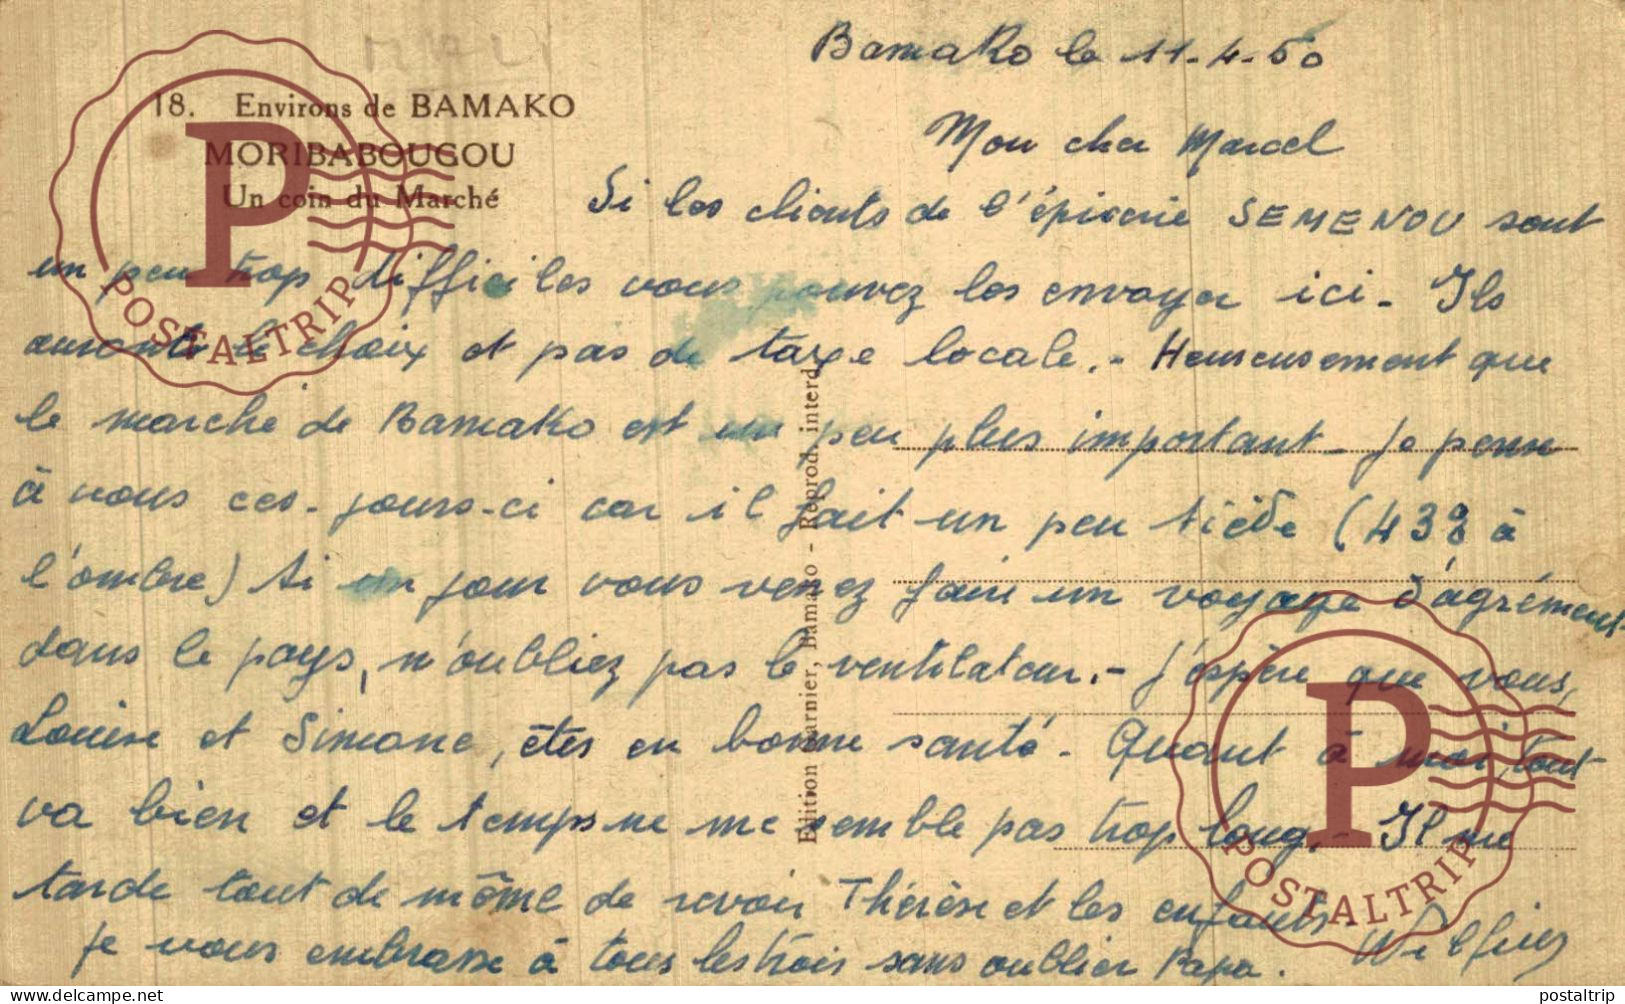 MALI
18. Environs de BAMAKO
MORIBABOUGOU
Un coin du Marché
Bamako le 11-4-50
Mon cher Marcel
Si les clients de l'épicerie SEMENOU sont
un peu trop difficiles vous pouvez les envoyer ici - Ils
auront le choix et pas de taxe locale. - Heureusement que
le marché de Bamako est un peu plus important - Je pense
à vous ces-jours-ci car il fait un peu tiède (43° à
l'ombre) Si un jour vous venez faire un voyage d'agrément
dans le pays, n'oubliez pas le ventilateur. - J'espère que vous,
Louise et Simone, êtes en bonne santé - Quant à moi, tout
va bien et le temps ne me semble pas trop long. - Il me
tarde tout de même de revoir Thérèse et les enfants
Je vous embrasse à tous les trois sans oublier Papa.
Edition Garnier, Bamako - Reprod. interd.
POSTALTRIP
POSTALTRIP
www.delcampe.net
postaltrip